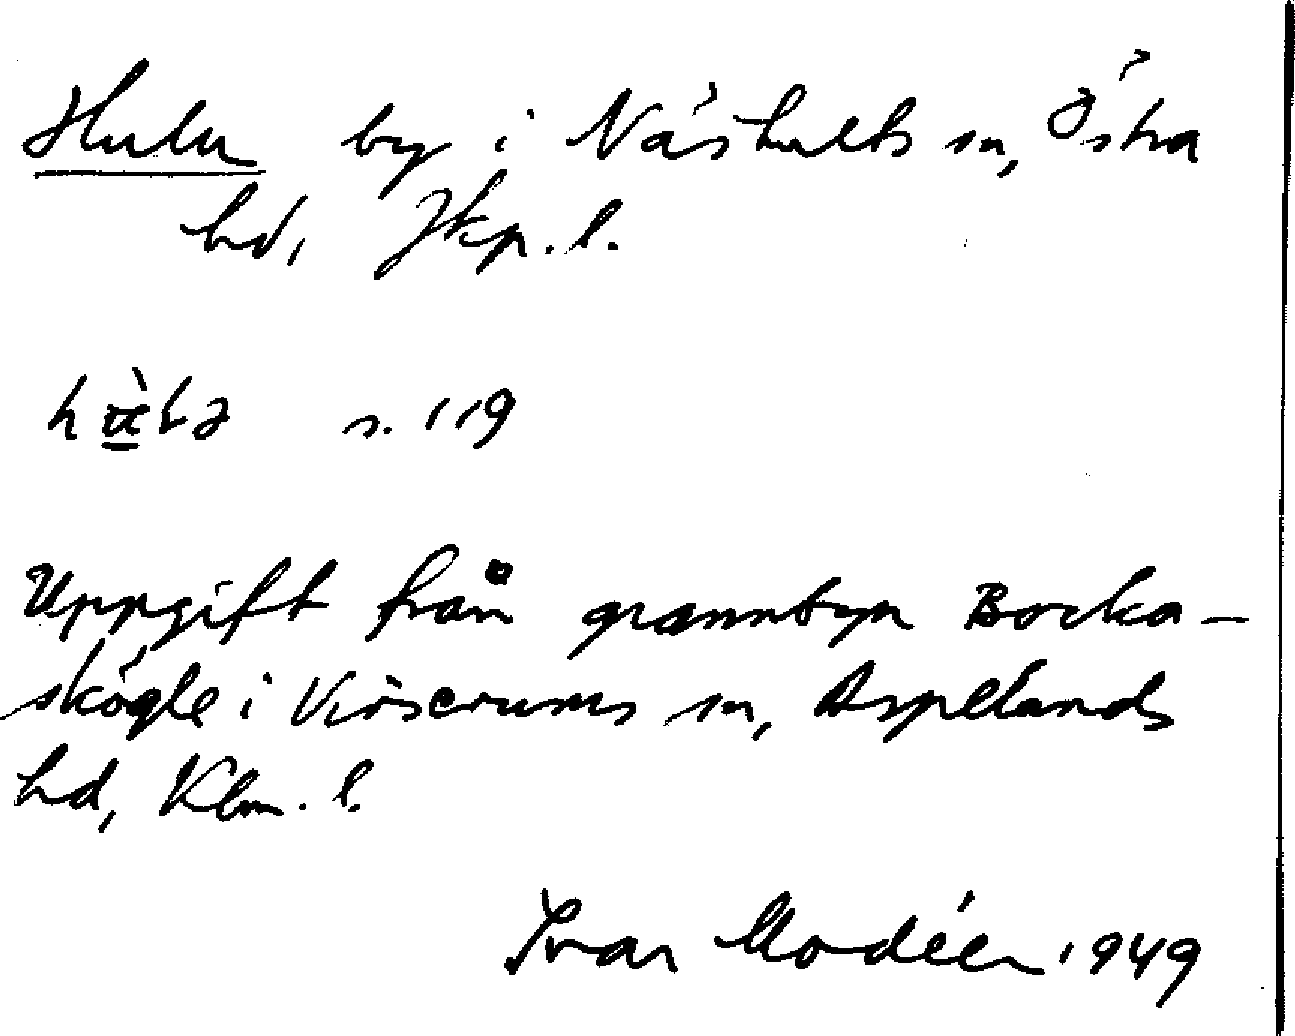 Hulu by i Näshults sn, Östra
hd, Jkp. l.
s. 119
Uppgift från grannbyn Bocka-
skögle i Virserums sn, Aspelands
hd, Klm. l.
Ivar Modéer 1949